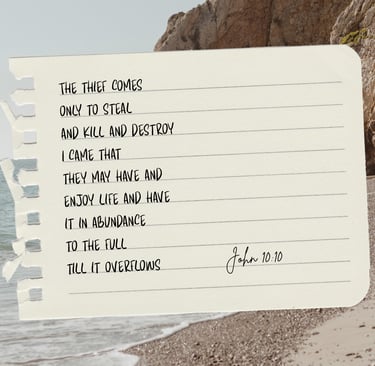 THE THIEF COMES
ONLY TO STEAL
AND KILL AND DESTROY
I CAME THAT
THEY MAY HAVE AND
ENJOY LIFE AND HAVE
IT IN ABUNDANCE
TO THE FULL
TILL IT OVERFLOWS John 10:10